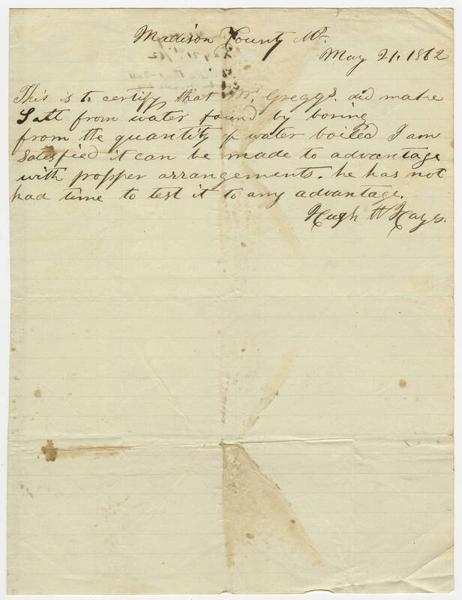 Madison County Mi.
May 21, 1862
This is to certify that Mr. Greggs. did make
Salt from water found by boring
from the quantity of water boiled I am
Satisfied it can be made to advantage
with propper arrangements. he has not
had time to test it to any advantage.
Hugh H Hays.